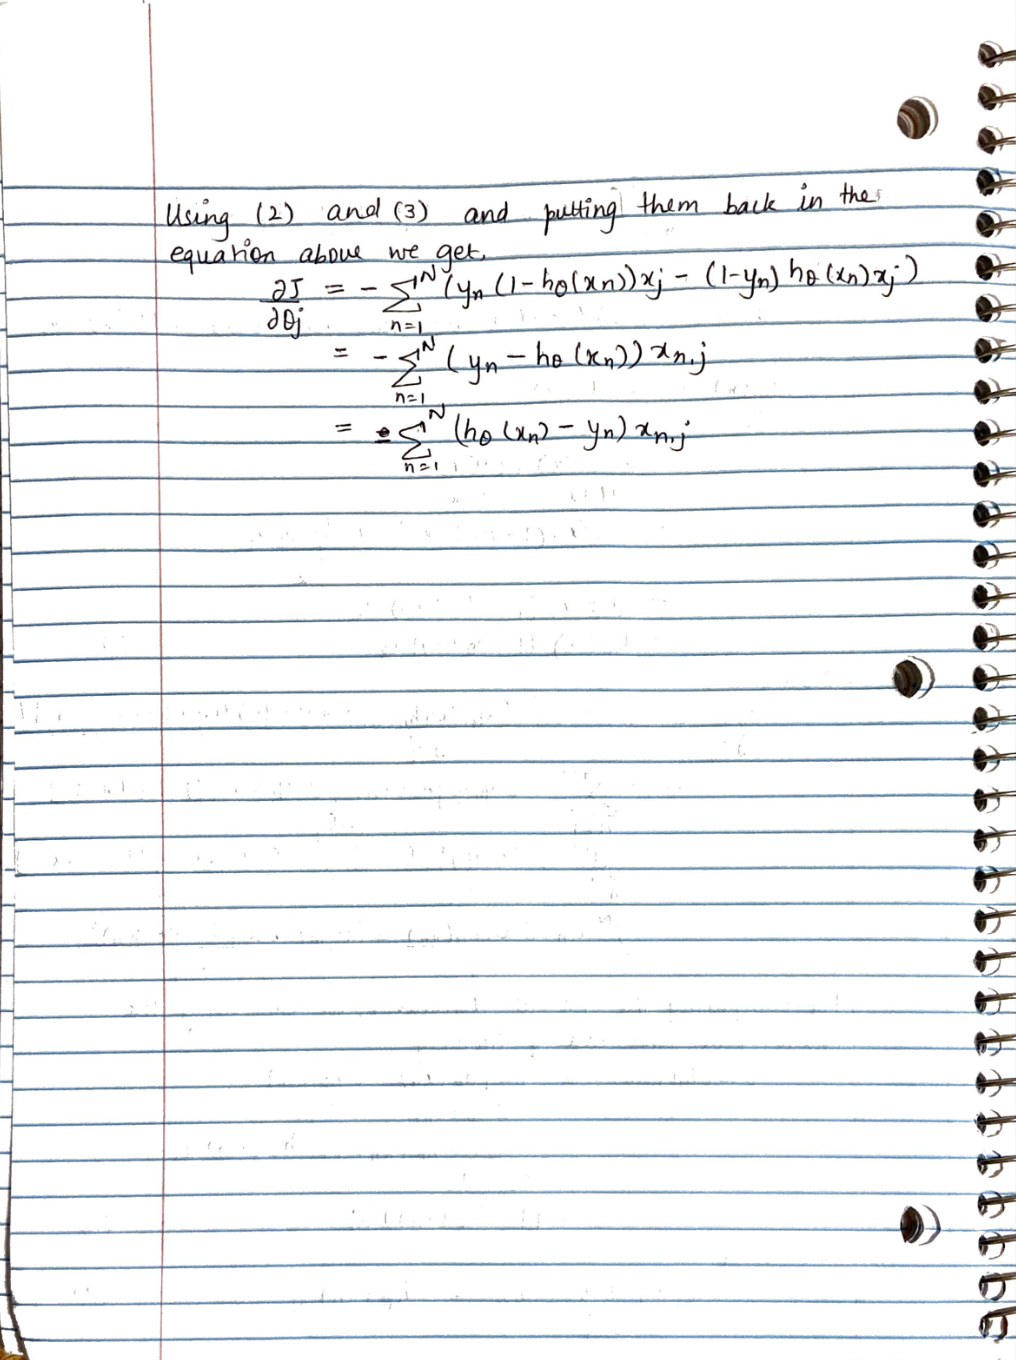 Using (2) and (3) and putting them back in the
equation above we get,
∂J/∂θj = - Σ_{n=1}^{N} (yn (1-hθ(xn))xj - (1-yn) hθ(xn)xj)
= - Σ_{n=1}^{N} (yn - hθ(xn)) xn,j
= Σ_{n=1}^{N} (hθ(xn) - yn) xn,j